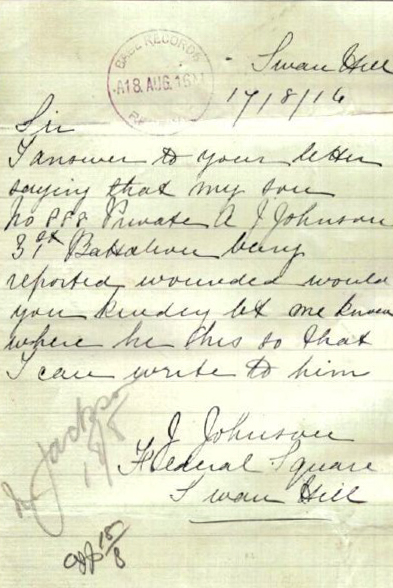 Swan Hill
BASE RECORDS
A18 AUG. 16
17/8/16
Sir
I answer to your letter
saying that my son
No 888 Private A J Johnson
31st Battalion being
reported wounded would
you kindly let me know
where he his so that
I can write to him
J Johnson
Federal Square
Swan Hill
Mr Jackson
18/8
18/8